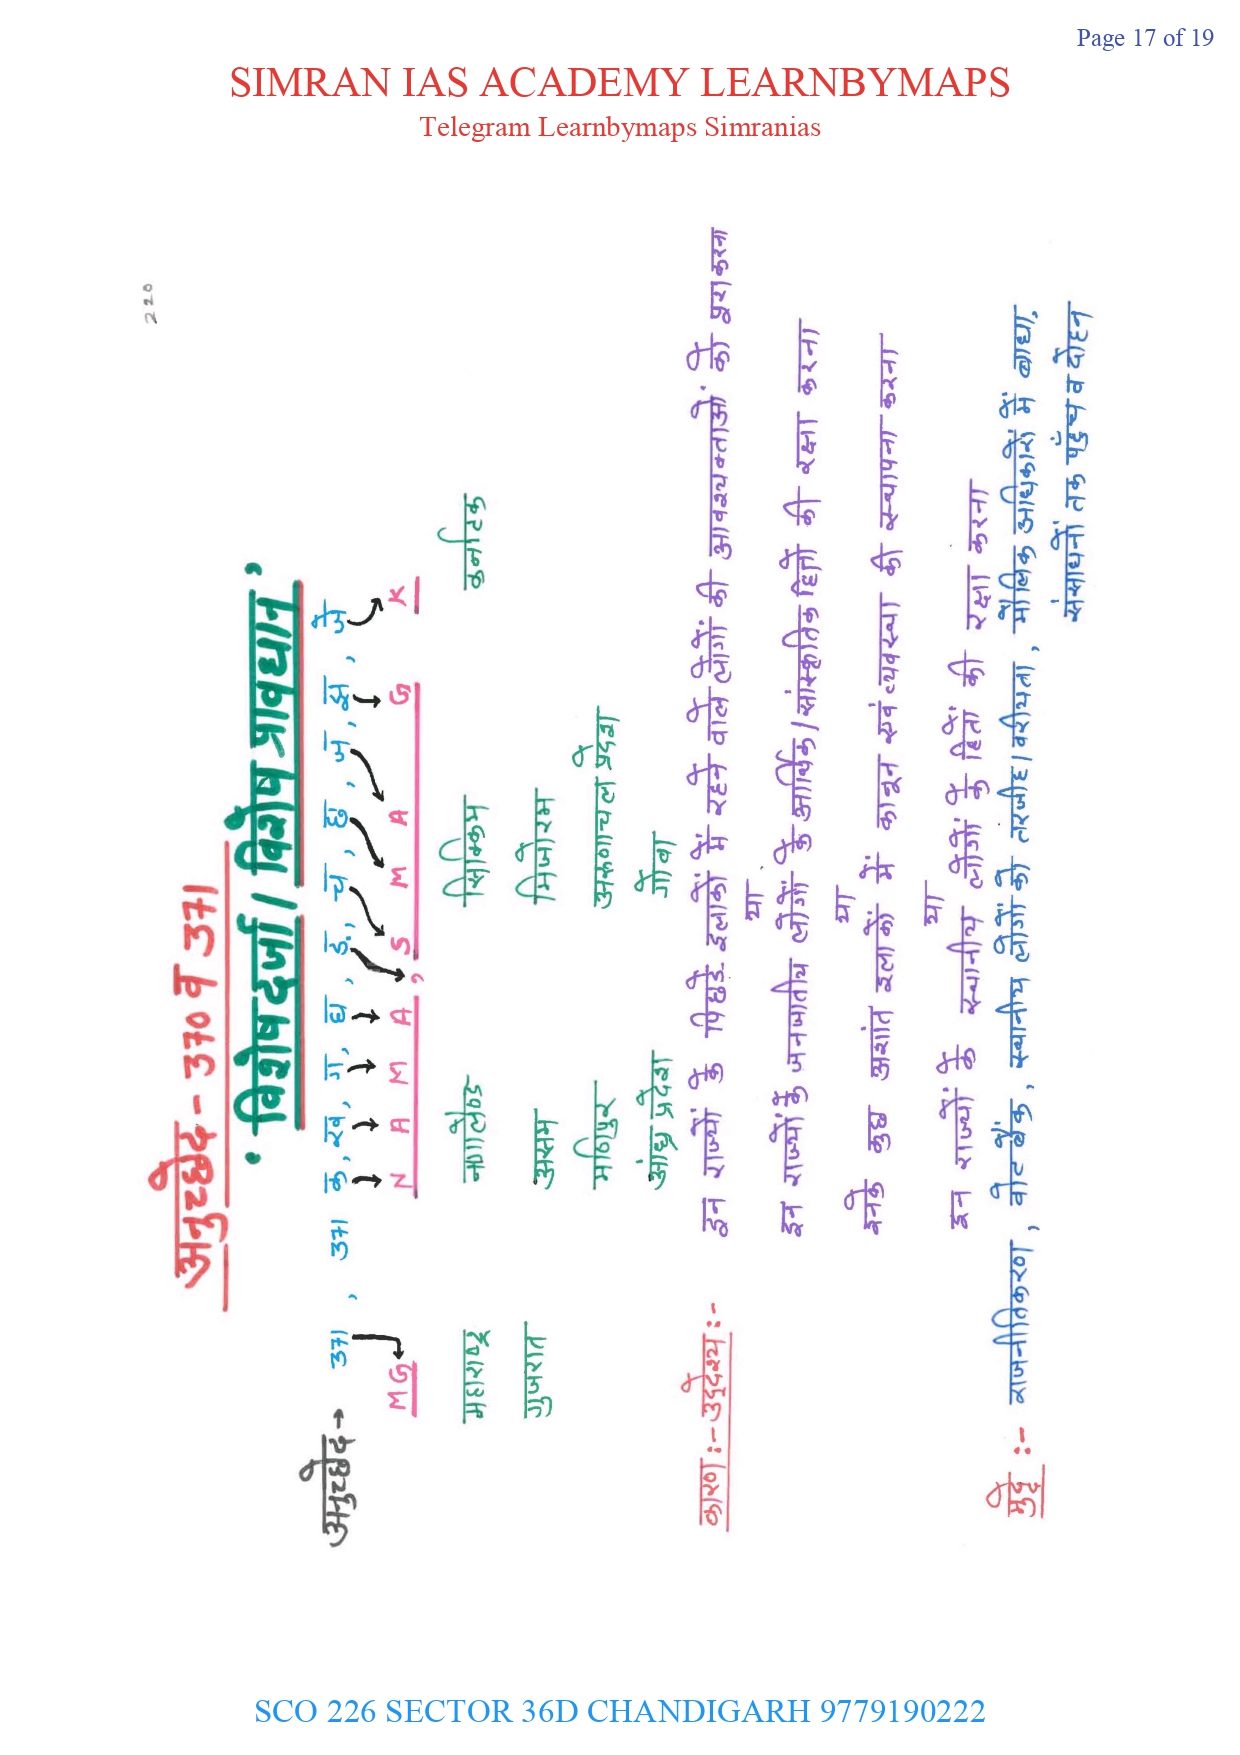 Page 17 of 19
SIMRAN IAS ACADEMY LEARNBYMAPS
Telegram Learnbymaps Simranias
220
अनुच्छेद - 370 व 371
' विशेष दर्जा / विशेष प्रावधान '
अनुच्छेद → 371 , 371 क , ख , ग , घ , ड. , च , छ , ज , झ , ञ
MG N A M A , S M A G K
महाराष्ट्र नागालैण्ड सिक्किम कर्नाटक
गुजरात असम मिजोरम
मणिपुर अरुणाचल प्रदेश
आंध्र प्रदेश गोवा
कारण :- उद्देश्य :- इन राज्यों के पिछड़े इलाकों में रहने वाले लोगों की आवश्यक्ताओं को पूरा करना
या
इन राज्यों के जनजातीय लोगों के आर्थिक / सांस्कृतिक हितों की रक्षा करना
या
इनके कुछ अशांत इलाकों में कानून एवं व्यवस्था की स्थापना करना
या
इन राज्यों के स्थानीय लोगों के हितों की रक्षा करना
मुद्दे :- राजनीतिकरण , वोट बैंक , स्थानीय लोगों को तरजीह / वरीयता , मौलिक अधिकारों में बाधा,
संसाधनों तक पहुँच व दोहन
SCO 226 SECTOR 36D CHANDIGARH 9779190222